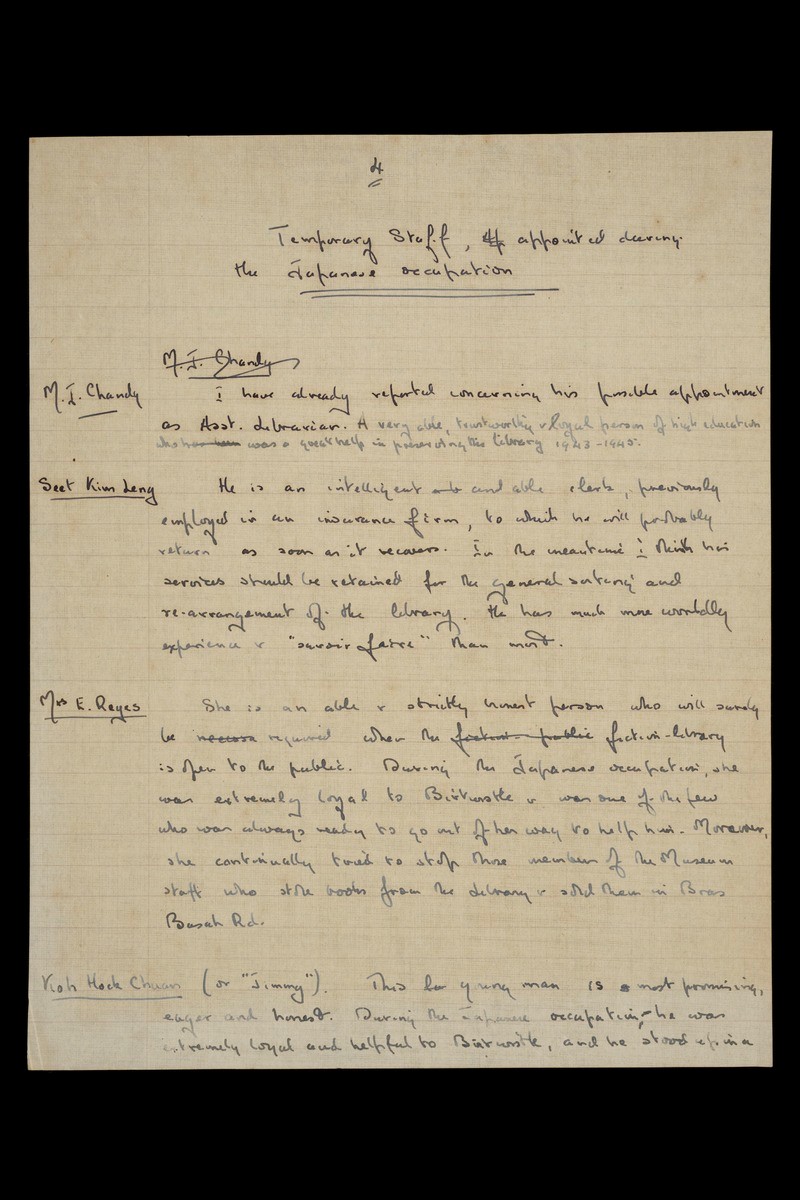 4
Temporary Staff, appointed during
the Japanese occupation
M.I. Chandy
M.I. Chandy I have already reported concerning his possible appointment
as Asst. Librarian. A very able, trustworthy & loyal person of high education
who was a great help in preserving the library 1943-1945.
Seet Kim Leng He is an intelligent and able clerk, previously
employed in an insurance firm, to which he will probably
return as soon as it recovers. In the meantime I think his
services should be retained for the general sorting and
re-arrangement of the library. He has much more worldly
experience & "savoir faire" than most.
Mrs E. Reyes She is an able & strictly honest person who will surely
be required when the fiction-public fiction-library
is open to the public. During the Japanese occupation, she
was extremely loyal to Birtwistle & was one of the few
who was always ready to go out of her way to help him. Moreover,
she continually tried to stop those members of the Museum
staff who stole books from the Library & sold them in Bras
Basah Rd.
Koh Hock Chuan (or "Jimmy"). This young man is most promising,
eager and honest. During the Japanese occupation, he was
extremely loyal and helpful to Birtwistle, and he stood up in a